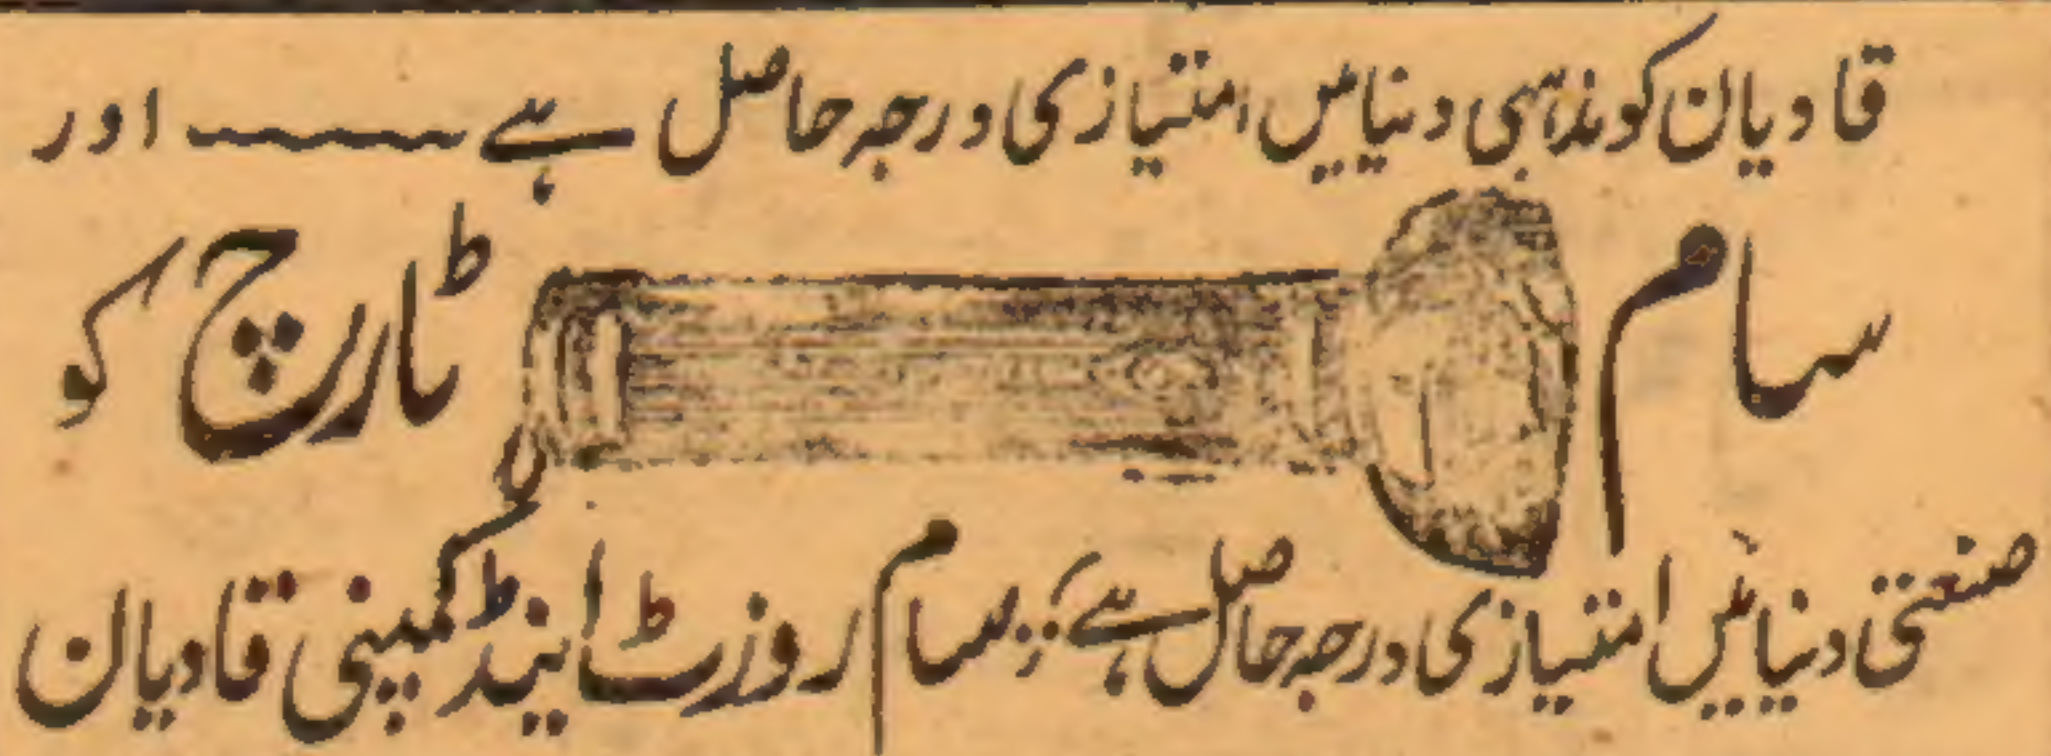 قادیان کو مذہبی دنیا میں امتیازی درجہ حاصل ہے ـــــ اور
سام ٹارچ کو
صنعتی دنیا میں امتیازی درجہ حاصل ہے؛؛ سام روزٹ اینڈ کمپنی قادیان